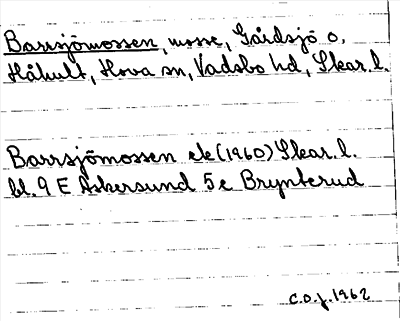 Barrsjömossen, mosse, Gårdsjö o.
Håhult, Hova sn, Vadsbo hd, Skar. l.
Barrsjömossen ek (1960) Skar. l.
bl. 9 E Askersund 5 e Brynterud
C.O.J. 1962